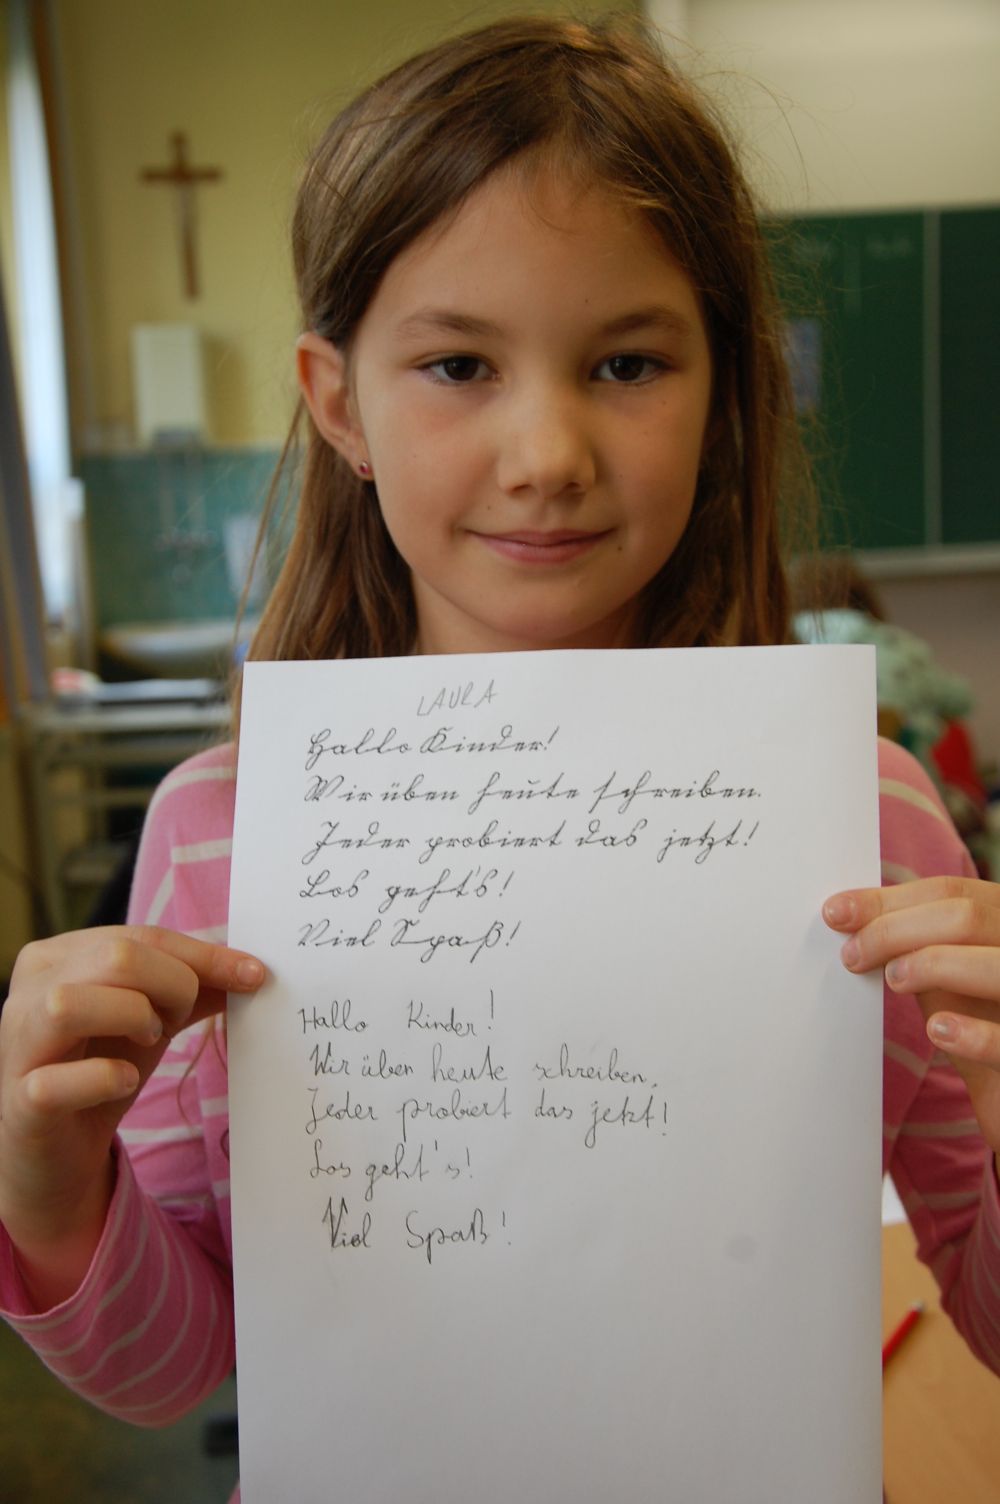 LAURA
Hallo Kinder!
Wir üben heute schreiben.
Jeder probiert das jetzt!
Los geht's!
Viel Spaß!
Hallo Kinder!
Wir üben heute schreiben.
Jeder probiert das jetzt!
Los geht's!
Viel Spaß!